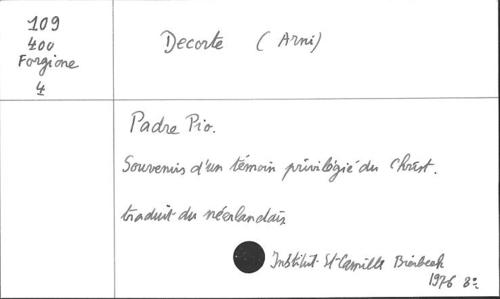 109
400
Forgione
4
Decorte (Arni)
Padre Pio.
Souvenirs d'un témoin privilégié du Christ.
traduit du néerlandais
Institut St Camille Bierbeek
1976 8º